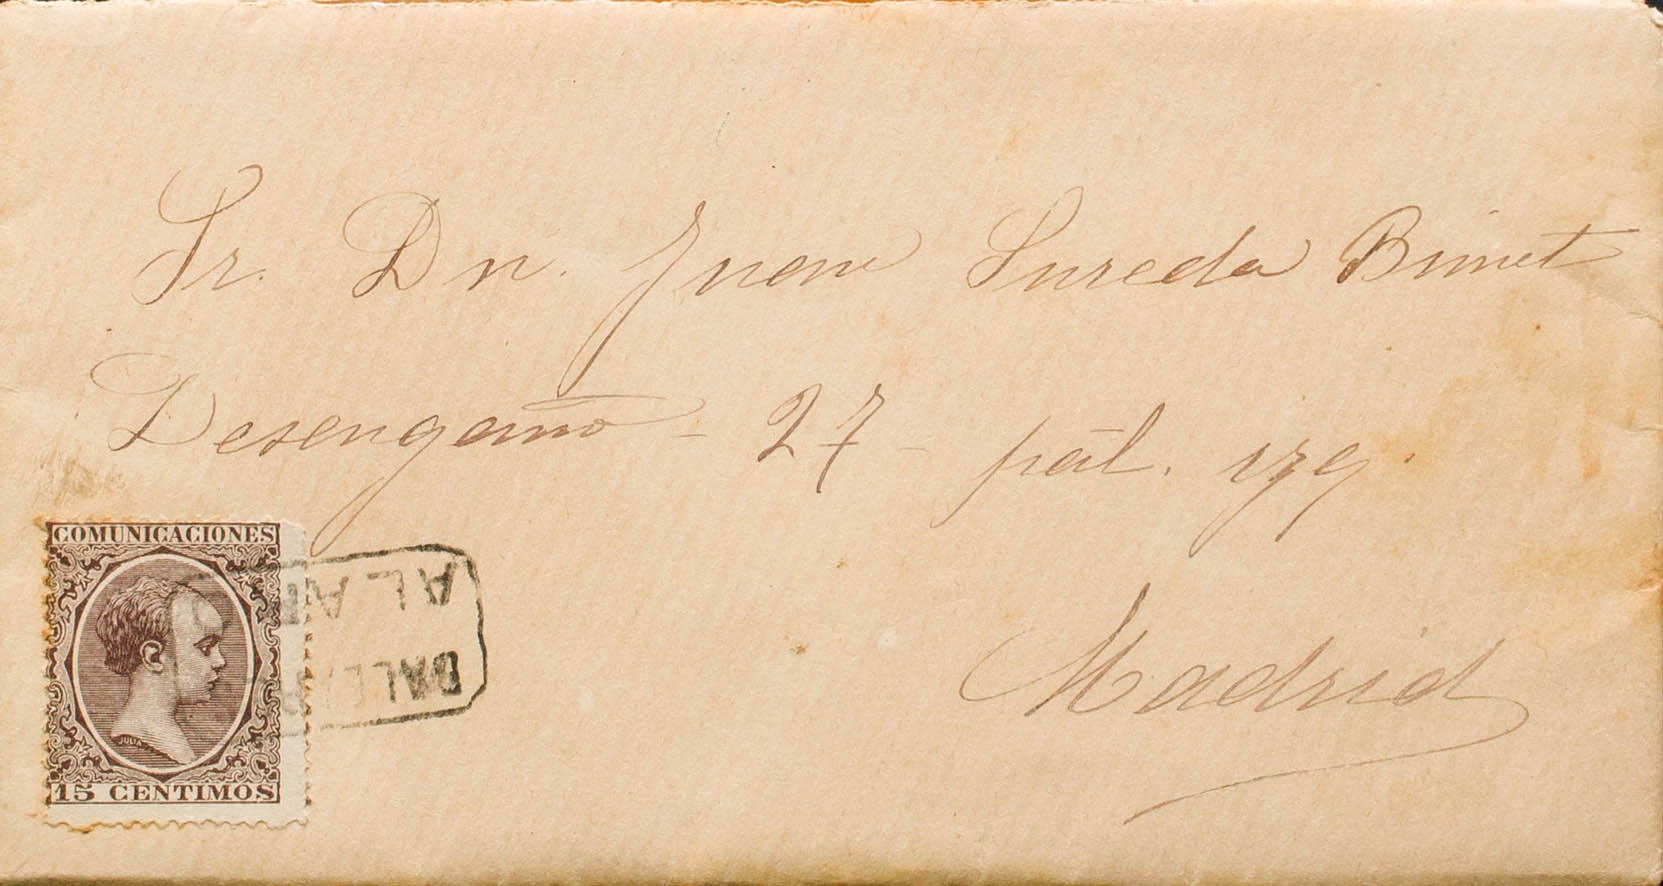 Sr. Dn. Juan Sureda Bimet
Desengaño - 27 - pāl. izq.
Madrid
COMUNICACIONES
JULIA
15 CENTIMOS